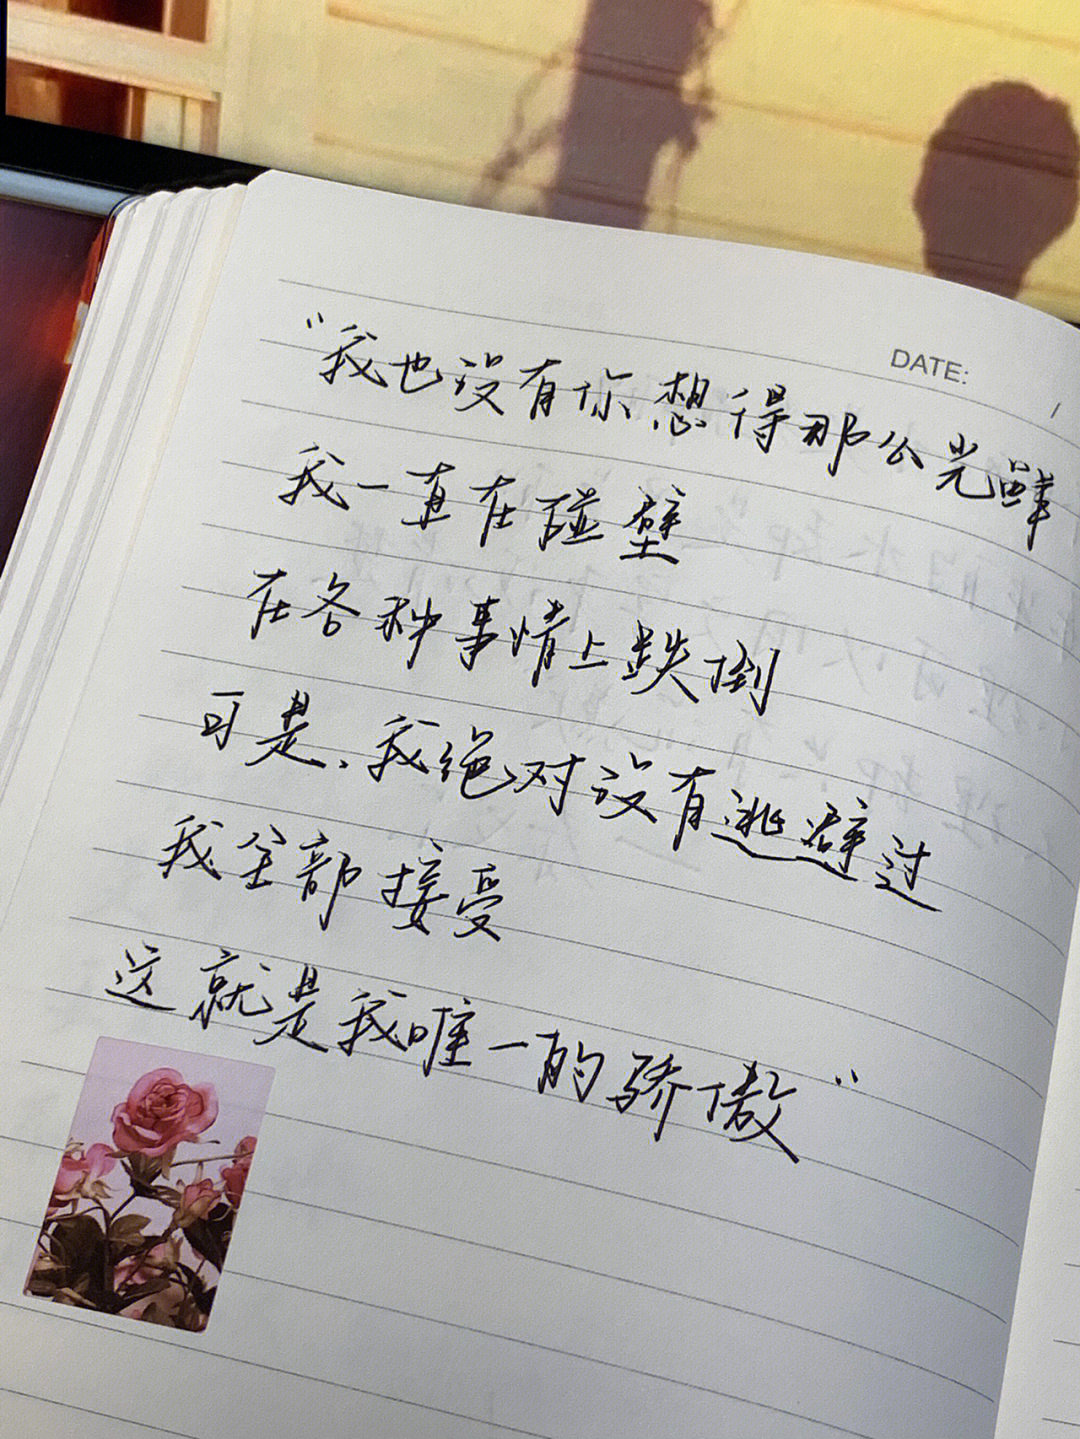 DATE:
"我也没有你想得那么光鲜
我一直在碰壁
在各种事情上跌倒
可是、我绝对没有逃避过
我全部接受
这就是我唯一的骄傲"